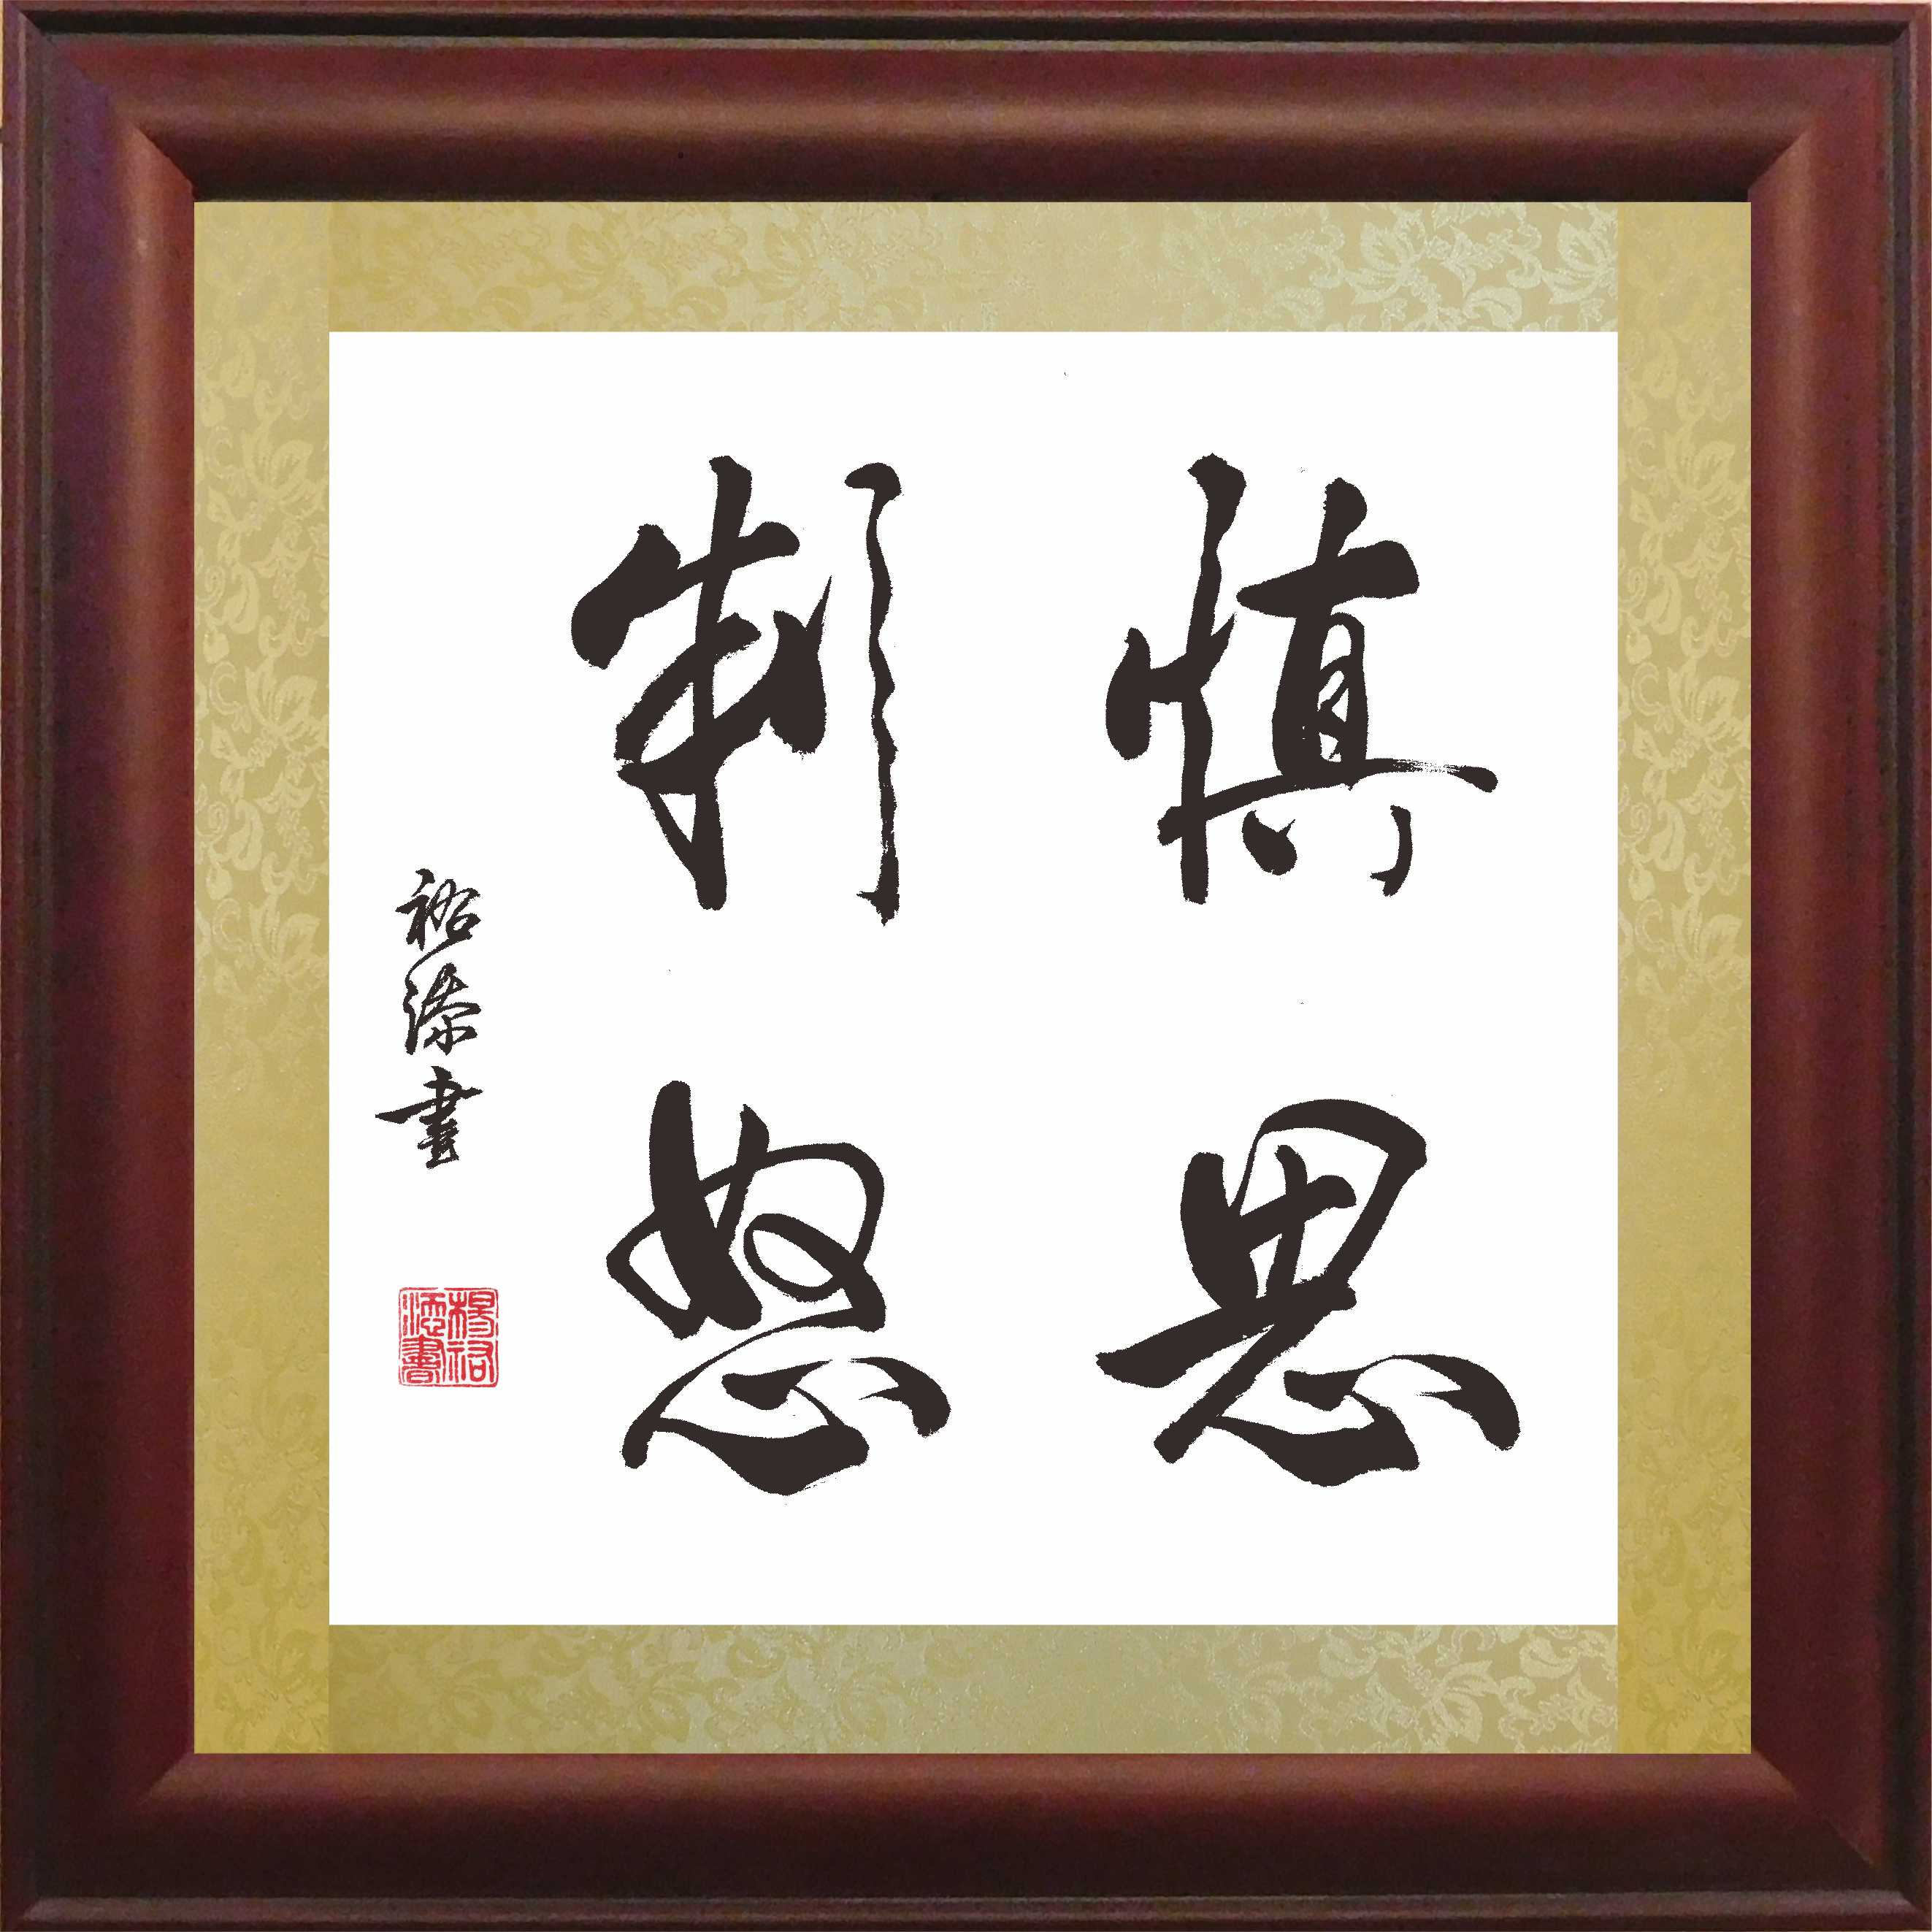 慎思
制怒
裕添書
楊裕
添書